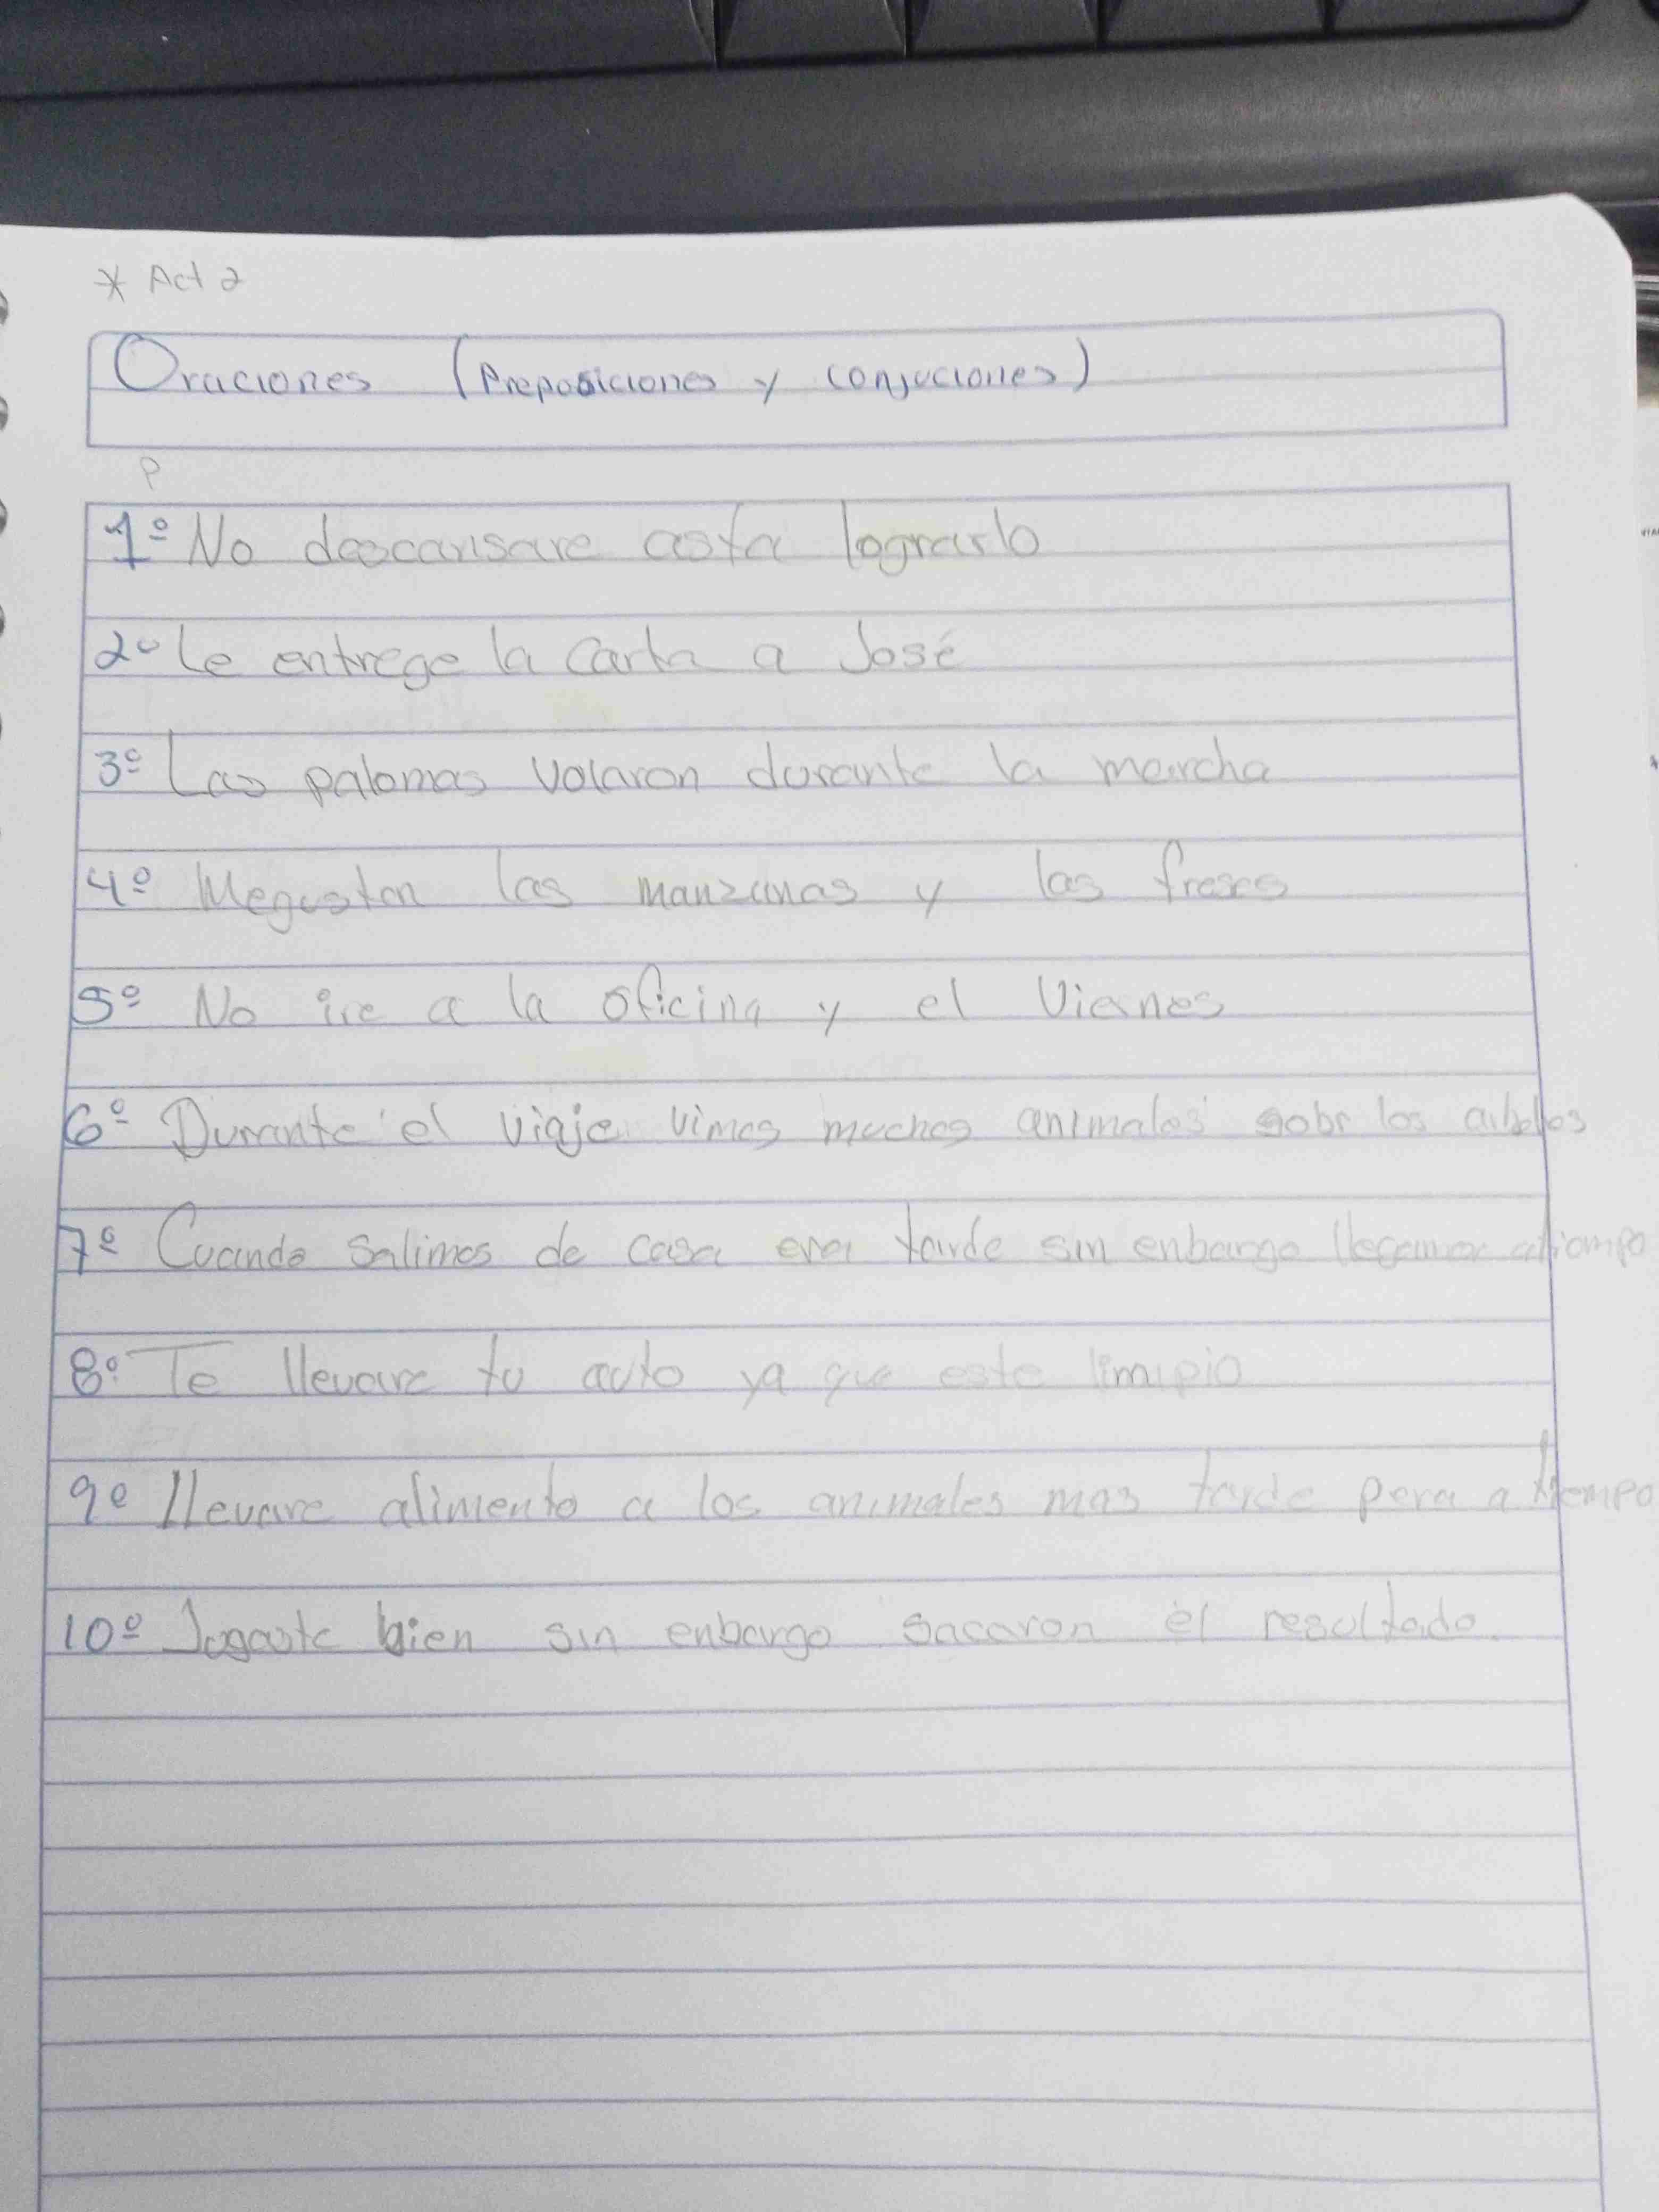 * Act 2
Oraciones (Preposiciones y conjuciones)
P
1º No descansare asta lograrlo
2º Le entrege la carta a José
3º Las palomas volaron durante la marcha
4º Megustan las manzanas y las fresas
5º No ire a la oficina y el Viernes
6º Durante el viaje vimos muchos animales sobr los
7º Cuando salimos de casa era tarde sin enbargo llegamos atiempo
8º Te llevare tu auto ya que este limipio
9º llevare alimento a los animales mas tarde pera a tiempo
10º Jugaste bien sin enbargo sacaron el resultado.